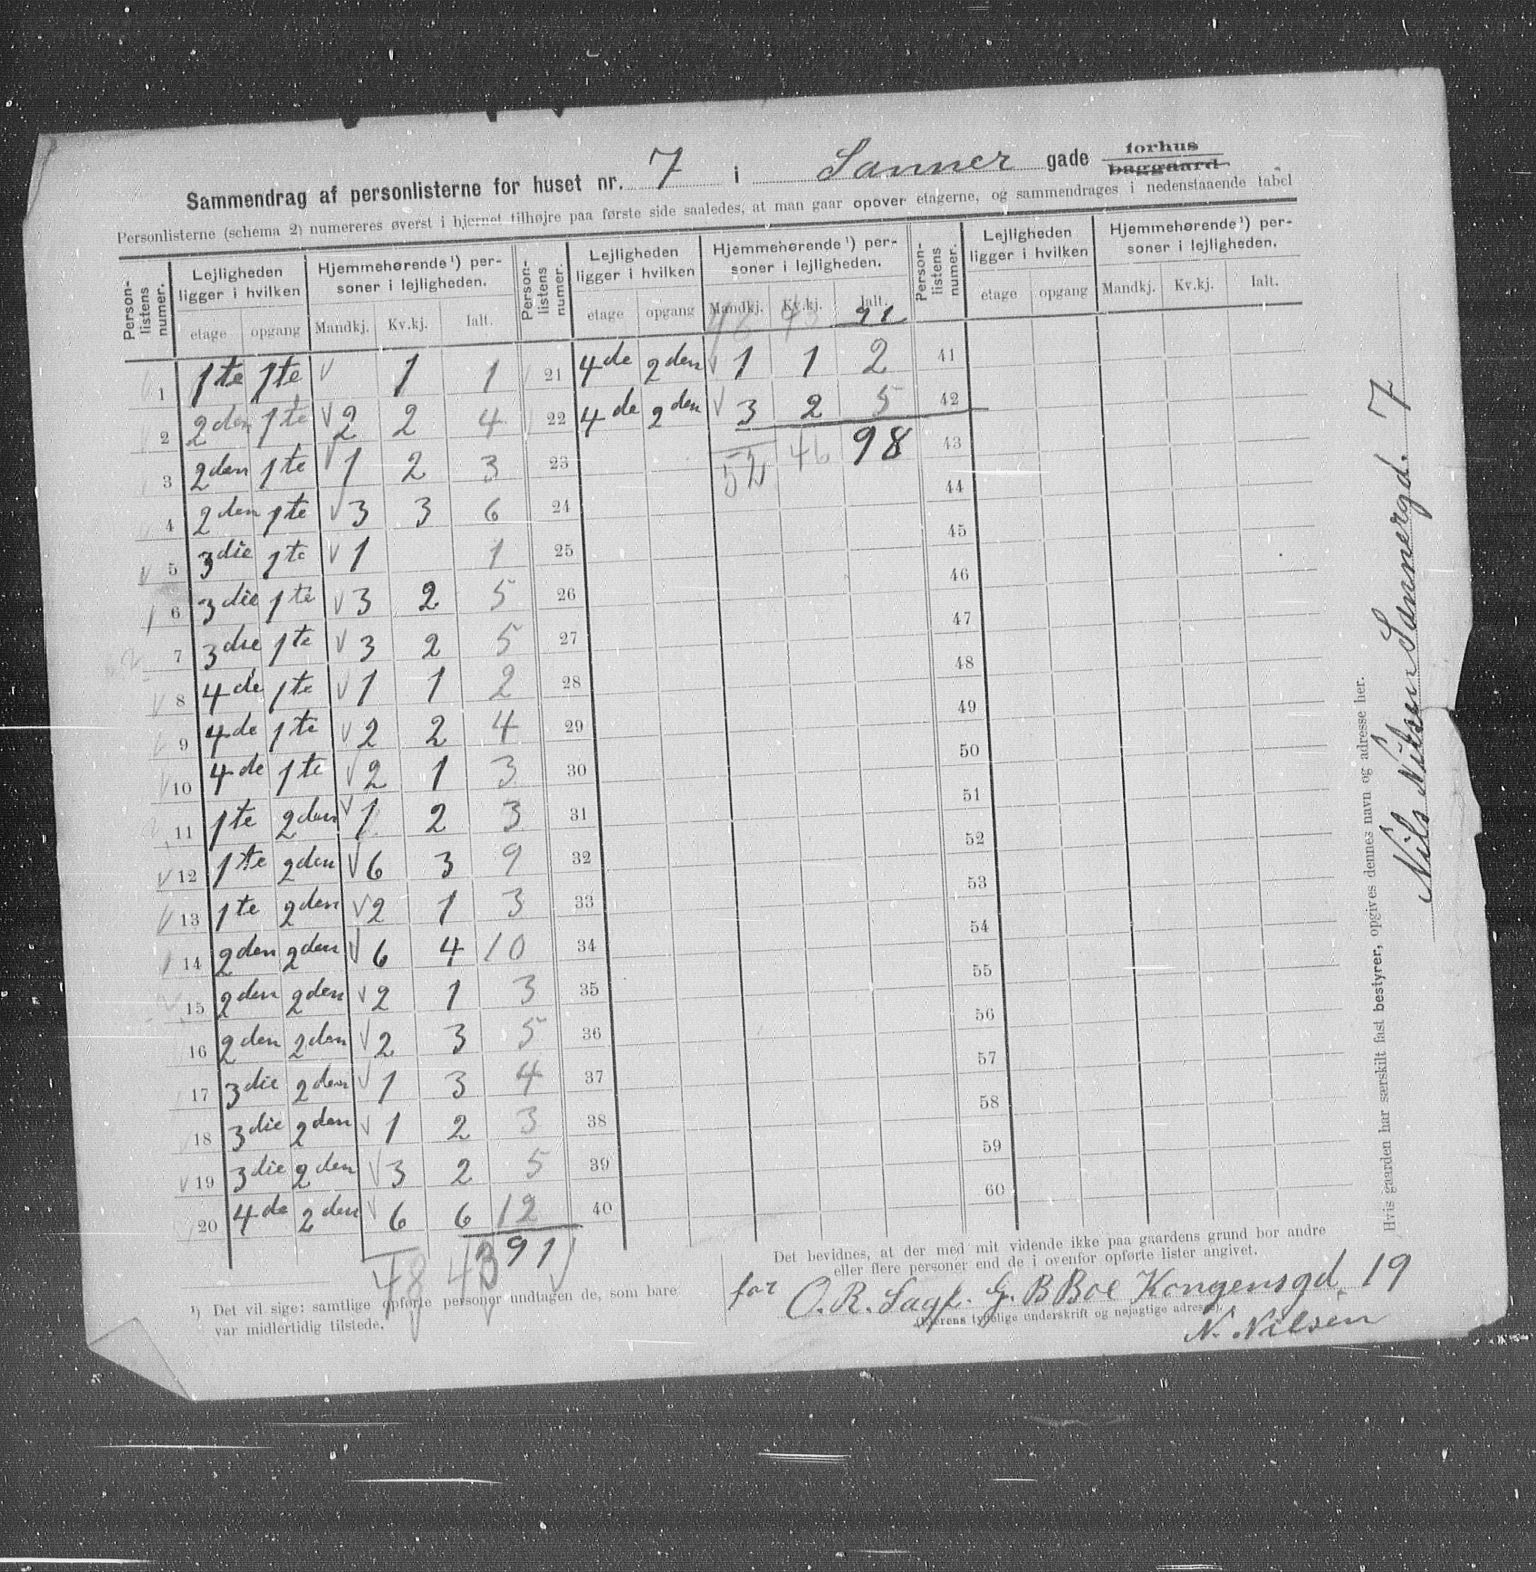 Sammendrag af personlisterne for huset nr. 7 i Sanner gade forhus baggaard
Personlisterne (schema 2) nummereres øverst i hjørnet tilhøjre paa første side saaledes, at man gaar opover etagerne, og sammendrages i nedenstaaende tabel
Person-listens numer. | Lejligheden ligger i hvilken etage | opgang | Hjemmehørende ¹) personer i lejligheden. Mandkj. | Kv.kj. | Ialt.
1 | 1te | 1te | √ | 1 | 1
2 | 2den | 1te | √ 2 | 2 | 4
3 | 2den | 1te | √ 1 | 2 | 3
4 | 2den | 1te | √ 3 | 3 | 6
5 | 3die | 1te | √ 1 | | 1
6 | 3die | 1te | √ 3 | 2 | 5
7 | 3die | 1te | √ 3 | 2 | 5
8 | 4de | 1te | √ 1 | 1 | 2
9 | 4de | 1te | √ 2 | 2 | 4
10 | 4de | 1te | √ 2 | 1 | 3
11 | 1te | 2den | √ 1 | 2 | 3
12 | 1te | 2den | √ 6 | 3 | 9
13 | 1te | 2den | √ 2 | 1 | 3
14 | 2den | 2den | √ 6 | 4 | 10
15 | 2den | 2den | √ 2 | 1 | 3
16 | 2den | 2den | √ 2 | 3 | 5
17 | 3die | 2den | √ 1 | 3 | 4
18 | 3die | 2den | √ 1 | 2 | 3
19 | 3die | 2den | √ 3 | 2 | 5
20 | 4de | 2den | √ 6 | 6 | 12
48 43 91 √
Person-listens numer. | Lejligheden ligger i hvilken etage | opgang | Hjemmehørende ¹) personer i lejligheden. Mandkj. | Kv.kj. | Ialt.
48 43 91
21 | 4de | 2den | √ 1 | 1 | 2
22 | 4de | 2den | √ 3 | 2 | 5
23 | 52 | 46 | 98
24
25
26
27
28
29
30
31
32
33
34
35
36
37
38
39
40
Person-listens numer. | Lejligheden ligger i hvilken etage | opgang | Hjemmehørende ¹) personer i lejligheden. Mandkj. | Kv.kj. | Ialt.
41
42
43
44
45
46
47
48
49
50
51
52
53
54
55
56
57
58
59
60
¹) Det vil sige: samtlige opførte personer undtagen de, som bare
var midlertidig tilstede.
Det bevidnes, at der med mit vidende ikke paa gaardens grund bor andre
eller flere personer end de i ovenfor opførte lister angivet.
for O. R. B Boe Kongensgd. 19
(Ejerens tydelige underskrift og nøjagtige adresse).
N. Nilsen
Hvis gaarden har særskilt fast bestyrer, opgives dennes navn og adresse her.
Nils Nilsen Sannergd. 7